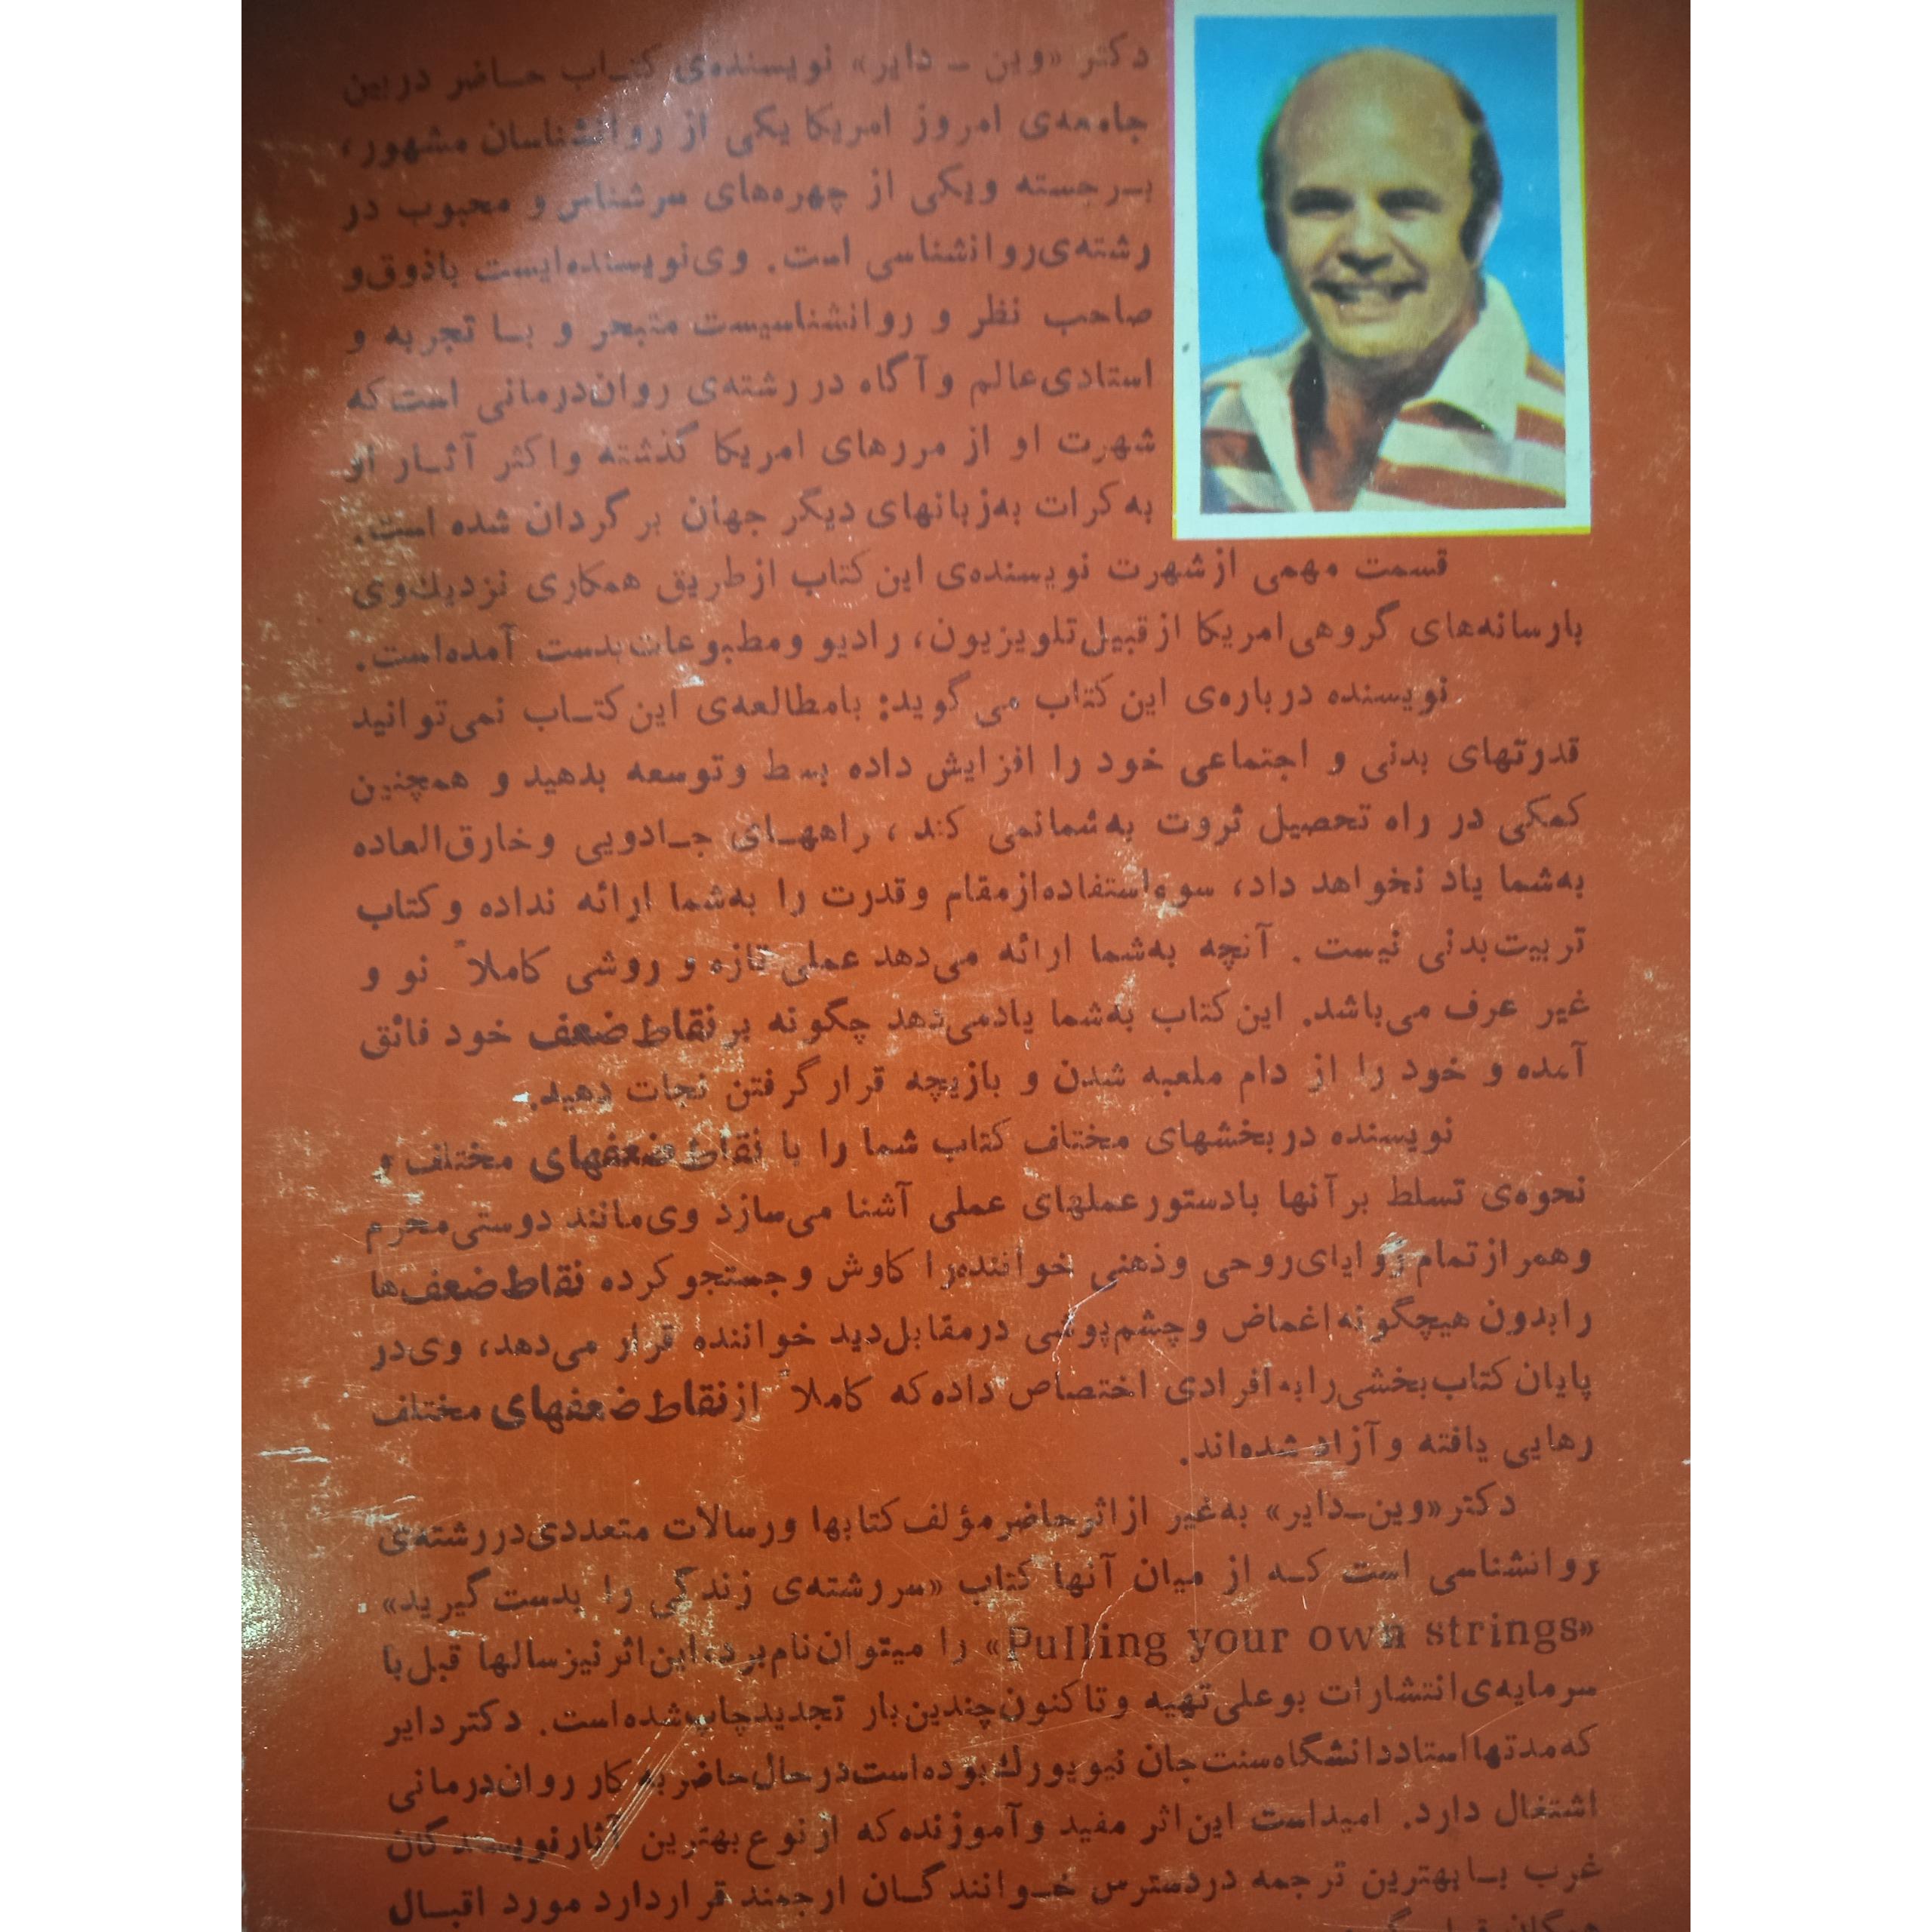 دکتر «وین ـ دایر» نویسنده‌ی کتـاب حـاضر در بین
جامعه‌ی امروز امریکا یکی از روانشناسان مشهور،
بـرجسته و یکی از چهره‌های سرشناس و محبوب در
رشته‌ی روانشناسی است. وی نویسنده‌ایست باذوق و
صاحب نظر و روانشناسیست متبحر و بـا تجربه و
استادی عالم و آگاه در رشته‌ی روان‌درمانی است که
شهرت او از مررهای امریکا گذشته و اکثر آثـار او
به کرات به‌زبانهای دیگر جهان برگردان شده است.
قسمت مهمی از شهرت نویسنده‌ی این کتاب از طریق همکاری نزدیك وی
با رسانه‌های گروهی امریکا از قبیل تلویزیون، رادیو و مطبوعات بدست آمده است.
نویسنده درباره‌ی این کتاب می گوید: با مطالعه‌ی این کتـاب نمی‌توانید
قدرتهای بدنی و اجتماعی خود را افزایش داده بسط و توسعه بدهید و همچنین
کمکی در راه تحصیل ثروت به‌شما نمی کند، راههـای جـادویی و خارق‌العاده
به‌شما یاد نخواهد داد، سوءاستفاده از مقام و قدرت را به‌شما ارائه نداده و کتاب
تربیت بدنی نیست. آنچه به‌شما ارائه می‌دهد عملی تازه و روشی کاملاً نو و
غیر عرف می‌باشد. این کتاب به‌شما یاد می‌دهد چگونه بر نقاط ضعف خود فائق
آمده و خود را از دام ملعبه شدن و بازیچه قرار گرفتن نجات دهید.
نویسنده در بخشهای مختلف کتاب شما را با نقاط ضعفهای مختلف و
نحوه‌ی تسلط بر آنها با دستورعملهای عملی آشنا می‌سازد وی مانند دوستی محرم
و همراز تمام زوایای روحی و ذهنی خواننده را کاوش و جستجو کرده نقاط ضعف‌ها
را بدون هیچگونه اغماض و چشم‌پوشی در مقابل دید خواننده قرار می‌دهد، وی در
پایان کتاب بخشی را به افرادی اختصاص داده که کاملاً از نقاط ضعفهای مختلف
رهایی یافته و آزاد شده‌اند.
دکتر «وین ـ دایر» به‌غیر از اثر حاضر مؤلف کتابها و رسالات متعددی در رشته‌ی
روانشناسی است کـه از میان آنها کتاب «سر رشته‌ی زندگی را بدست گیرید»
«Pulling your own strings» را میتوان نام برد، این اثر نیز سالها قبل با
سرمایه‌ی انتشارات بوعلی تهیه و تاکنون چندین بار تجدید چاپ شده است. دکتر دایر
که مدتها استاد دانشگاه سنت جان نیویورك بوده است در حال حاضر به کار روان‌درمانی
اشتغال دارد. امید است این اثر مفید و آموزنده که از نوع بهترین آثار نویسندگان
غرب بـا بهترین ترجمه در دسترس خـوانندگـان ارجمند قرار دارد مورد اقبـال